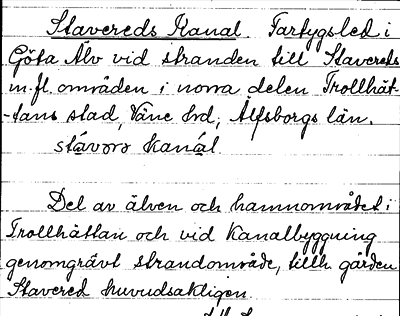 Stavereds Kanal. Fartygsled i
Göta Älv vid stranden till Stavereds
m.fl. områden i norra delen Trollhät-
-tans stad, Väne hrd, Älfsborgs län.
stávərs kanál
Del av älven och hamnområdet i
Trollhättan och vid kanalbyggning
genomgrävt strandområde, tillh. gården
Stavered huvudsakligen.